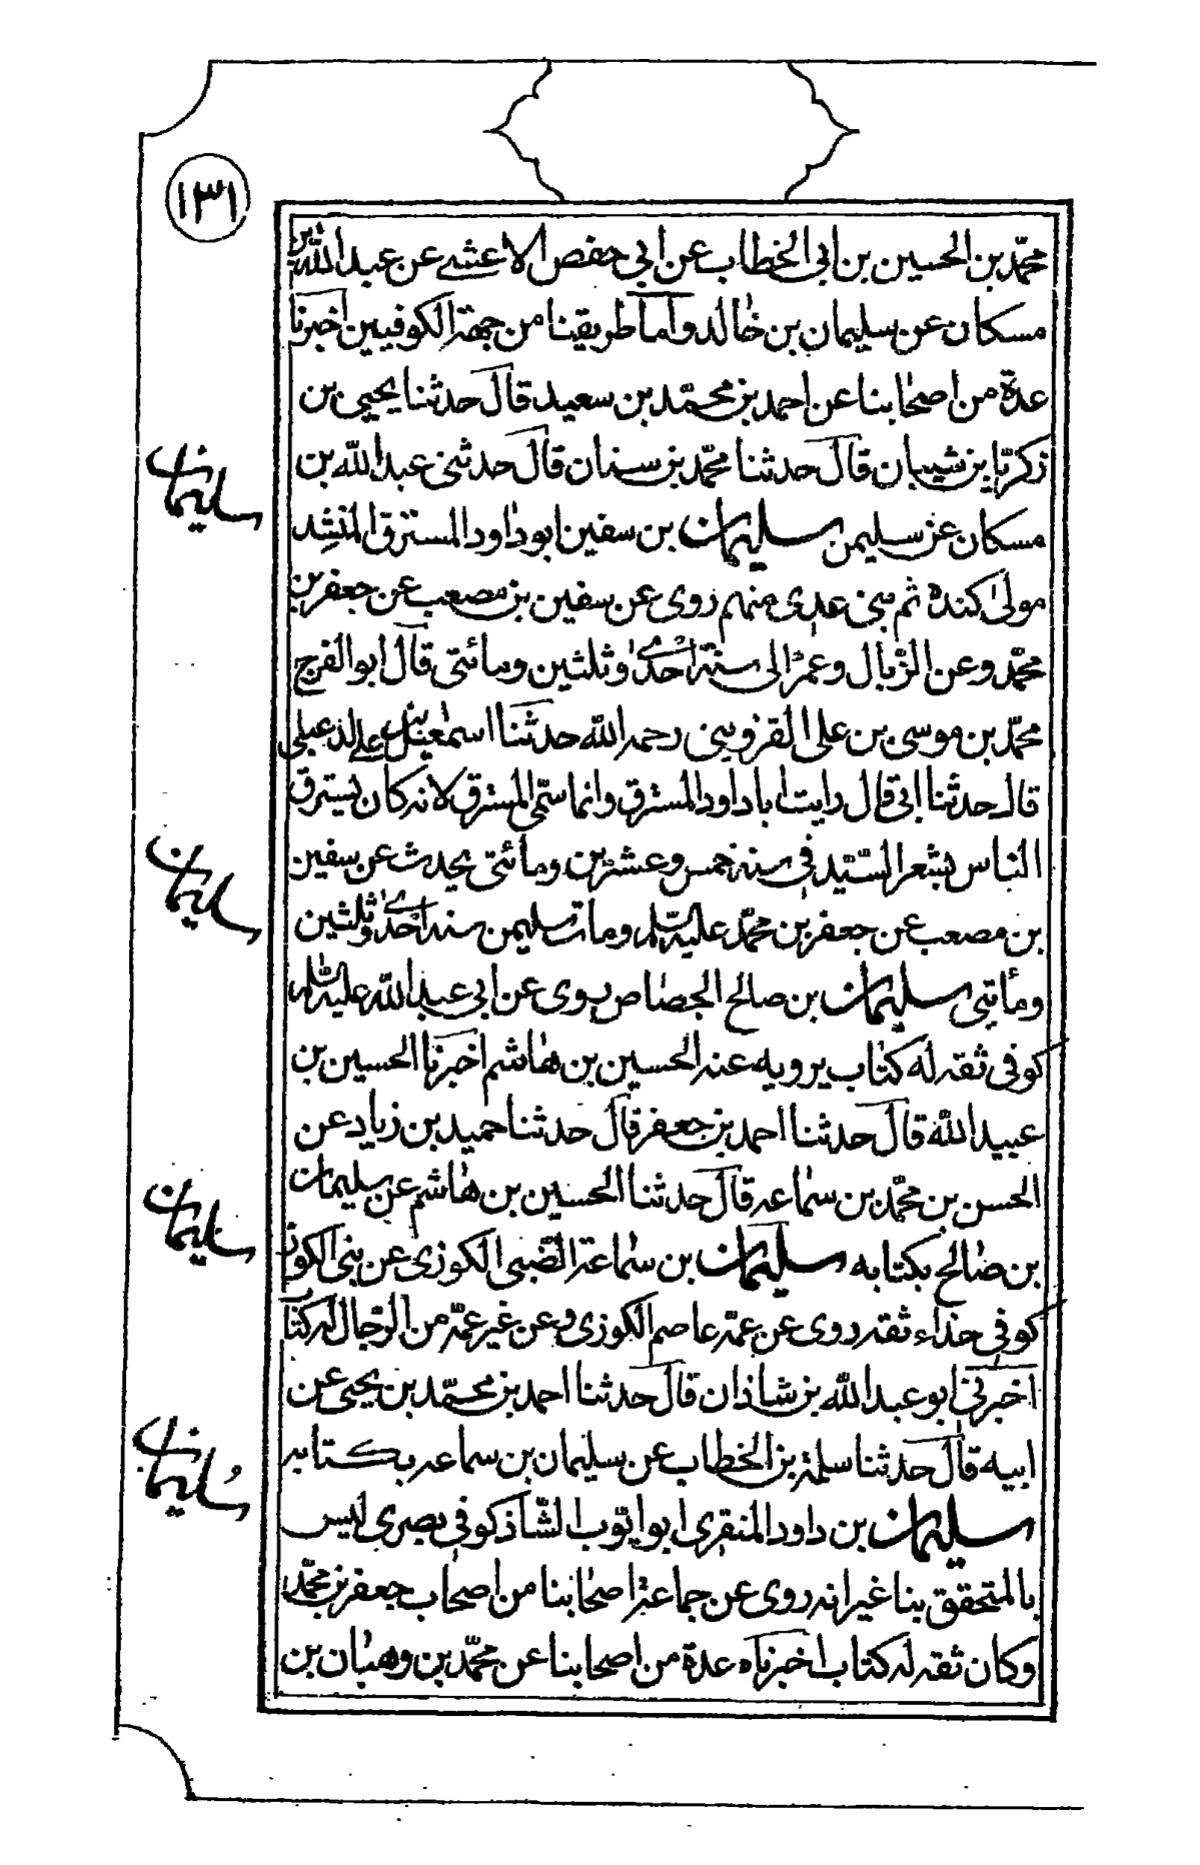 ١٣١
محمّد بن الحسين بن ابى الخطاب عن ابي حفص الاعشى عن عبدالله بن
مسكان عن سليمان بن خالد وأما طريقنا من جهة الكوفيين اخبرنا
عدة من اصحابنا عن احمد بن محمّد بن سعيد قال حدثنا يحيى بن
زكريّا بن شيبان قال حدثنا محمّد بن سنان قال حدثنى عبدالله بن
مسكان عن سليمن سليمان بن سفين ابو داود المسترق المنشد
مولى كنده ثم بنى عدى منهم روى عن سفين بن مصعب عن جعفر بن
محمّد وعن الزبال وعمر الى سنة احدى وثلثين ومائتى قال ابو الفرج
محمّد بن موسى بن على القزوينى رحمه الله حدثنا اسمعيل بن على الدعبلى
قال حدثنا ابى قال رايت اباداود المسترق وانما سمّى المسترق لانه كان يسترق
الناس بشعر السيّد فى سنة خمس وعشرين ومائتى يحدث عن سفين
بن مصعب عن جعفر بن محمّد عليه السلم ومات سليمن سنه احدى وثلثين
ومأتى سليمان بن صالح الجصاص روى عن ابى عبدالله عليه السلم
كوفى ثقه له كتاب يرويه عنه الحسين بن هاشم اخبرنا الحسين بن
عبيدالله قال حدثنا احمد بن جعفر قال حدثنا حميد بن زياد عن
الحسن بن محمّد بن سماعه قال حدثنا الحسين بن هاشم عن سليمان
بن صالح بكتابه سليمان بن سماعة الضبى الكوزى عن بنى الكوز
كوفى حذاء ثقه روى عن عمّه عاصم الكوزى وعن غير عمّه من الرّجال له كتاب
اخبرنى ابو عبدالله بن شاذان قال حدثنا احمد بن محمّد بن يحيى عن
ابيه قال حدثنا سلمة بن الخطاب عن سليمان بن سماعه بكتابه
سليمان بن داود المنقرى ابو ايّوب الشّاذكوفى بصرى ليس
بالمتحقق بنا غير انه روى عن جماعة اصحابنا من اصحاب جعفر بن محمّد
وكان ثقه له كتاب اخبرناه عدة من اصحابنا عن محمّد بن وهبان بن
سليمان
سليمان
سليمان
سُليمان